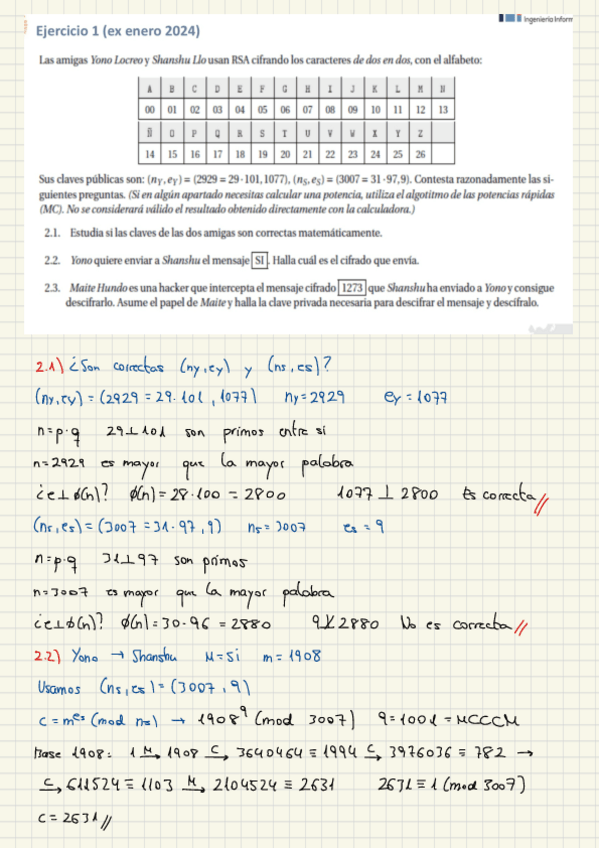 Ingeniería Inform
Ejercicio 1 (ex enero 2024)
Las amigas Yono Locreo y Shanshu Llo usan RSA cifrando los caracteres de dos en dos, con el alfabeto:
A B C D E F G H I J K L M N
00 01 02 03 04 05 06 07 08 09 10 11 12 13
Ñ O P Q R S T U V W X Y Z
14 15 16 17 18 19 20 21 22 23 24 25 26
Sus claves públicas son: (nY, eY) = (2929 = 29·101, 1077), (nS, eS) = (3007 = 31·97, 9). Contesta razonadamente las si-
guientes preguntas. (Si en algún apartado necesitas calcular una potencia, utiliza el algotitmo de las potencias rápidas
(MC). No se considerará válido el resultado obtenido directamente con la calculadora.)
2.1. Estudia si las claves de las dos amigas son correctas matemáticamente.
2.2. Yono quiere enviar a Shanshu el mensaje SI. Halla cuál es el cifrado que envía.
2.3. Maite Hundo es una hacker que intercepta el mensaje cifrado 1273 que Shanshu ha enviado a Yono y consigue
descifrarlo. Asume el papel de Maite y halla la clave privada necesaria para descifrar el mensaje y descífralo.
2.1) ¿Son correctas (ny, ey) y (ns, es)?
(ny, ey) = (2929 = 29·101, 1077) ny = 2929 ey = 1077
n = p·q 29⊥101 son primos entre si
n = 2929 es mayor que la mayor palabra
¿e⊥ϕ(n)? ϕ(n) = 28·100 = 2800 1077 ⊥ 2800 Es correcta //
(ns, es) = (3007 = 31·97, 9) ns = 3007 es = 9
n = p·q 31⊥97 son primos
n = 3007 es mayor que la mayor palabra
¿e⊥ϕ(n)? ϕ(n) = 30·96 = 2880 9⊥̸2880 No es correcta //
2.2) Yono → Shanshu M = Si m = 1908
Usamos (ns, es) = (3007, 9)
c = m^es (mod ns) → 1908^9 (mod 3007) 9 = 1001 = MCCCM
Base 1908: 1 M→ 1908 C→ 3640464 ≡ 1994 C→ 3976036 ≡ 782 →
C→ 611524 ≡ 1103 M→ 2104524 ≡ 2631 2631 ≡ 1 (mod 3007)
c = 2631 //